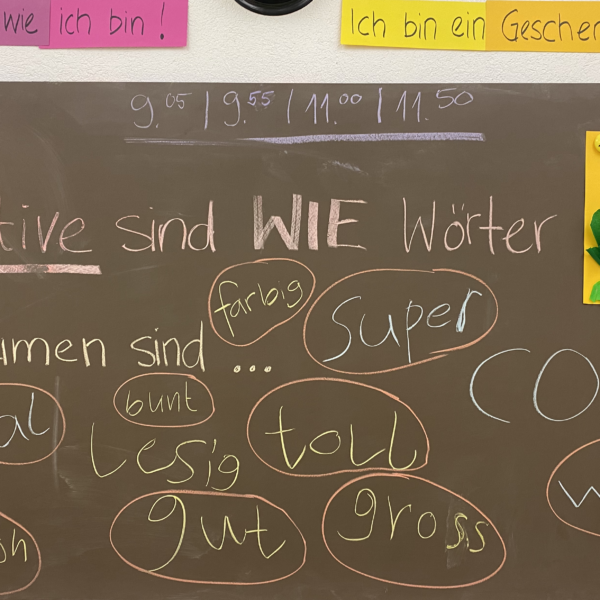 wie ich bin !
Ich bin ein Geschen
9.05 | 9.55 | 11.00 | 11.50
tive sind WIE Wörter
umen sind ...
farbig
super
CO
al
bunt
Lesig
toll
w
gut
gross
sh